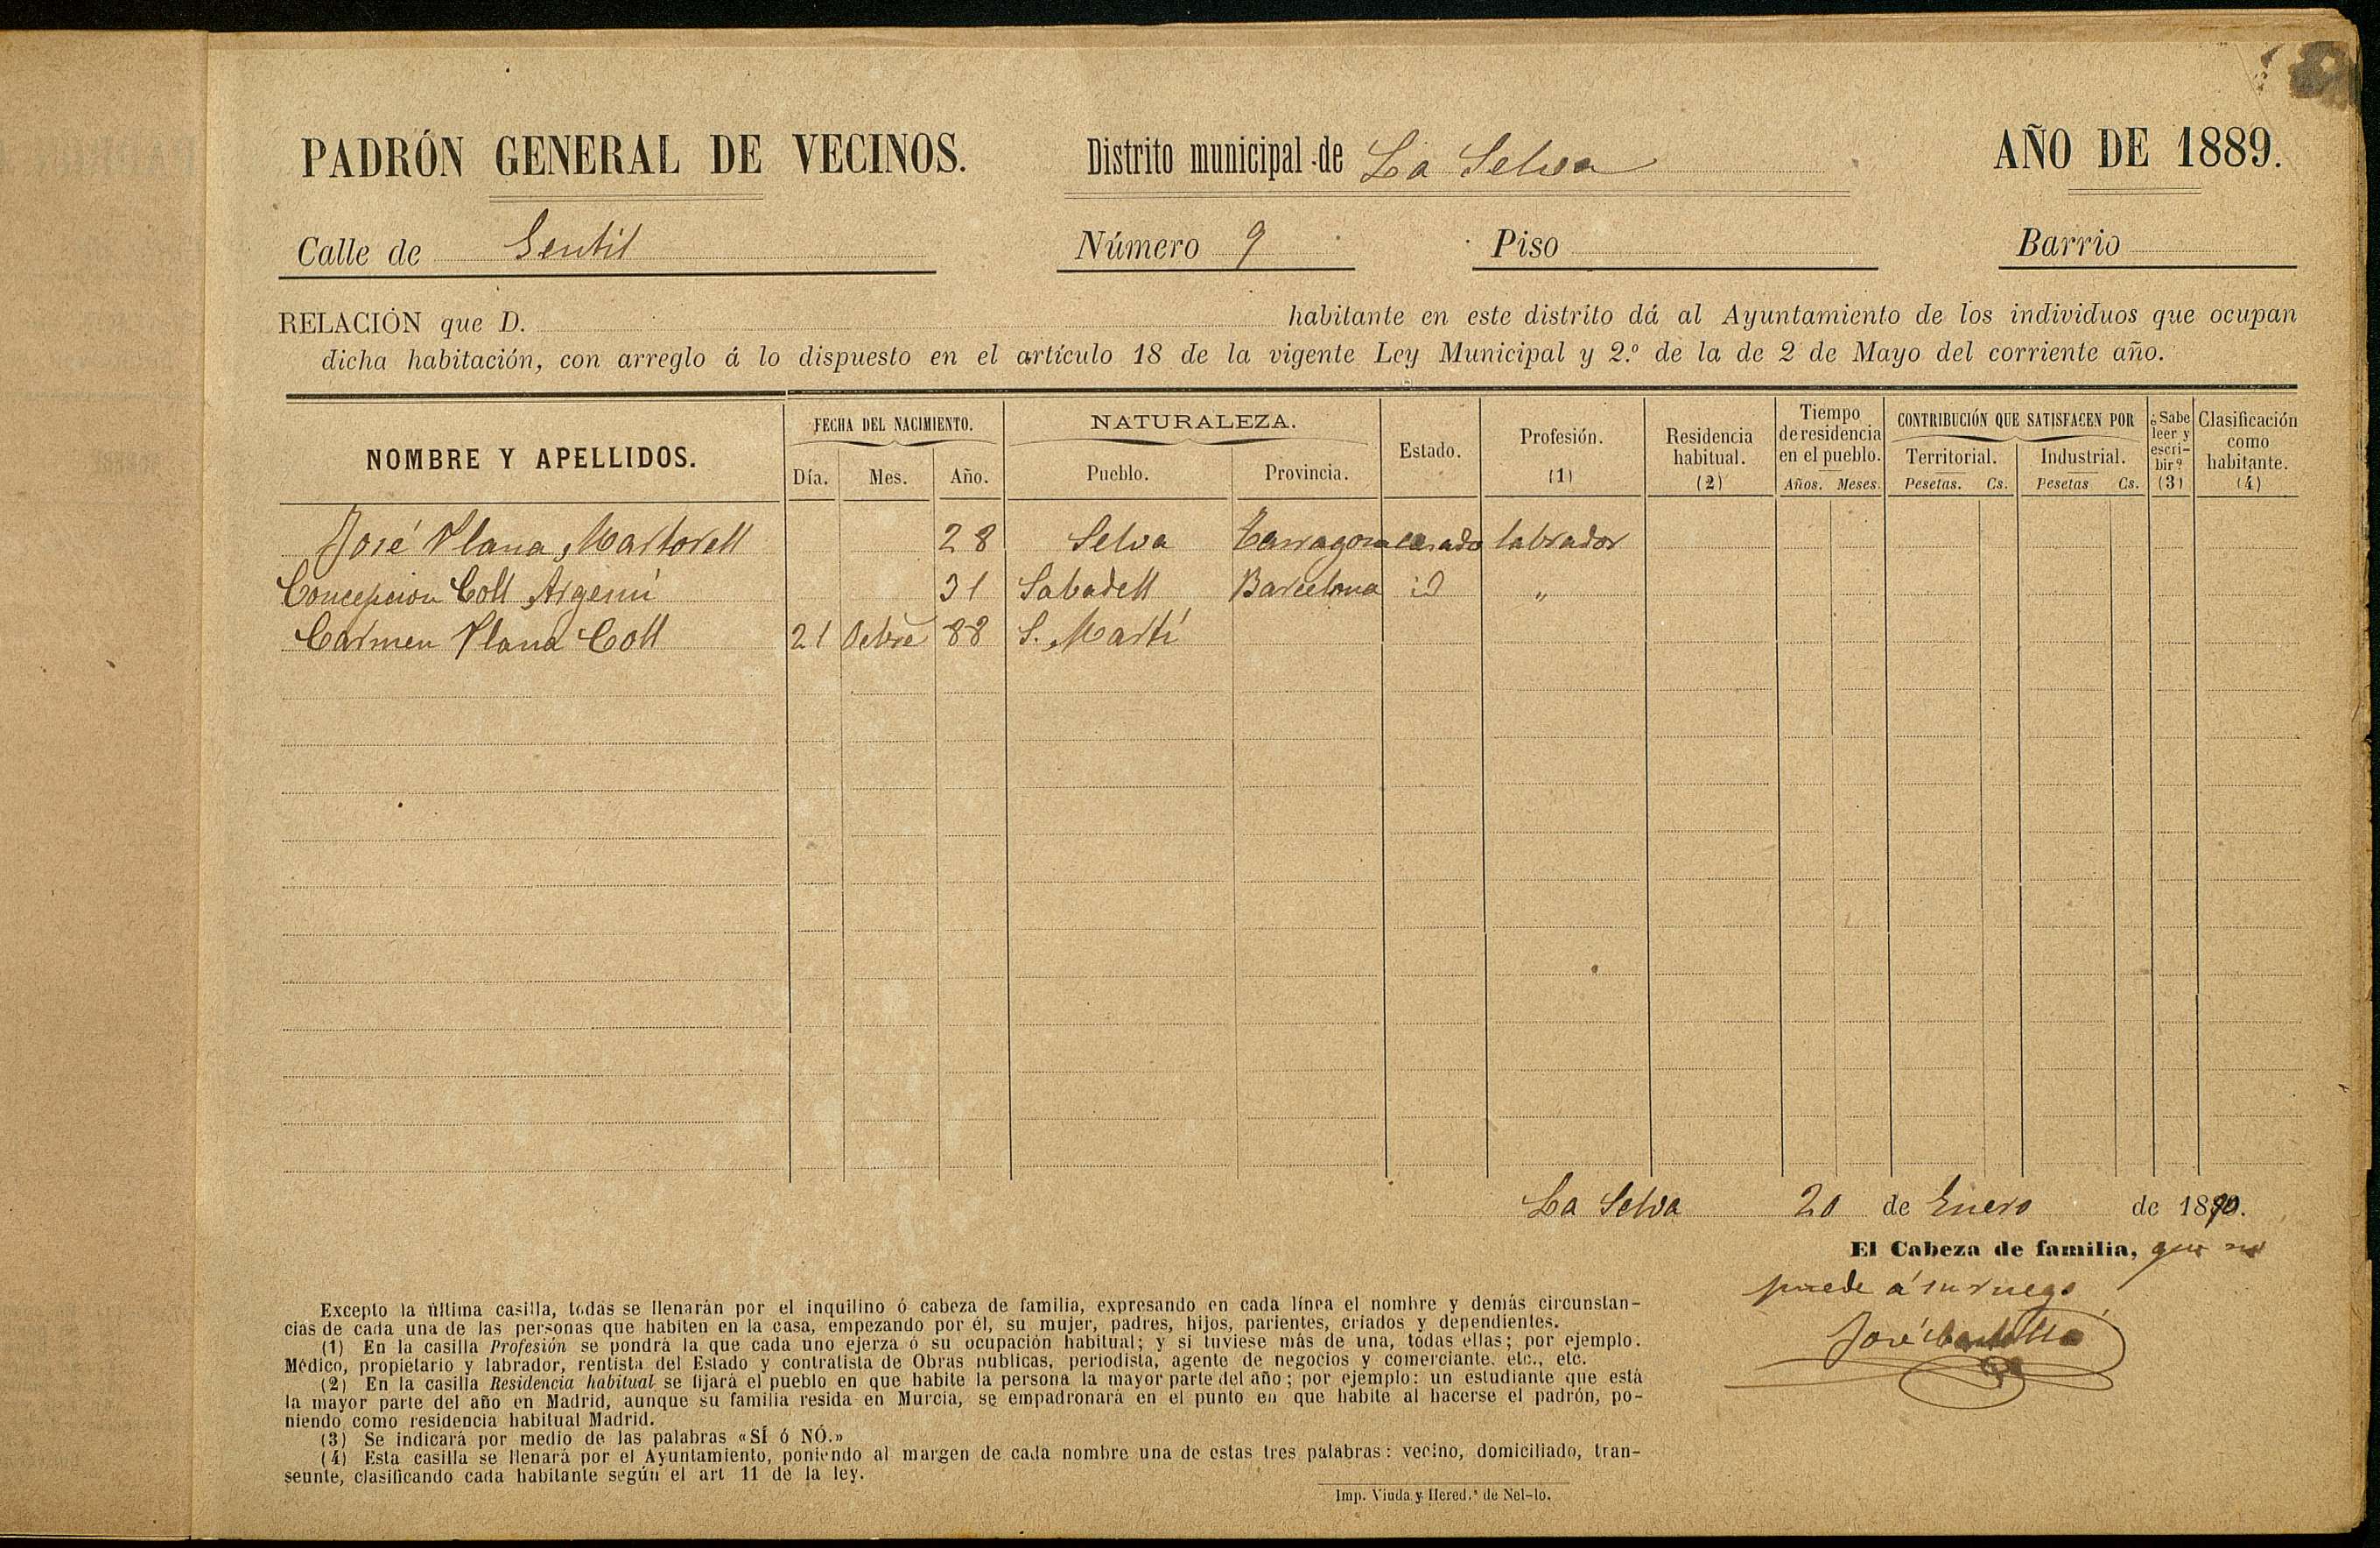 PADRÓN GENERAL DE VECINOS. Distrito municipal de La Selva AÑO DE 1889.
Calle de Gentil Número 9 Piso Barrio
RELACIÓN que D. habitante en este distrito dá al Ayuntamiento de los individuos que ocupan
dicha habitación, con arreglo á lo dispuesto en el artículo 18 de la vigente Ley Municipal y 2.º de la de 2 de Mayo del corriente año.
NOMBRE Y APELLIDOS. FECHA DEL NACIMIENTO. Día. Mes. Año. NATURALEZA. Pueblo. Provincia. Estado. Profesión. (1) Residencia habitual. (2) Tiempo de residencia en el pueblo. Años. Meses. CONTRIBUCIÓN QUE SATISFACEN POR Territorial. Pesetas. Cs. Industrial. Pesetas Cs. ¿Sabe leer y escribir? (3) Clasificación como habitante. (4)
José Plana Martorell 28 Selva Tarragona casado labrador
Concepcion Coll Argemí 31 Sabadell Barcelona id "
Carmen Plana Coll 21 Octbre 88 S. Martí
La Selva 20 de Enero de 1890.
El Cabeza de familia, que no
puede á su ruego
José
Excepto la última casilla, todas se llenarán por el inquilino ó cabeza de familia, expresando en cada línea el nombre y demás circunstan-
cias de cada una de las personas que habiten en la casa, empezando por él, su mujer, padres, hijos, parientes, criados y dependientes.
(1) En la casilla Profesión se pondrá la que cada uno ejerza ó su ocupación habitual; y si tuviese más de una, todas ellas; por ejemplo.
Médico, propietario y labrador, rentista del Estado y contratista de Obras públicas, periodista, agente de negocios y comerciante. etc., etc.
(2) En la casilla Residencia habitual se fijará el pueblo en que habite la persona la mayor parte del año; por ejemplo: un estudiante que está
la mayor parte del año en Madrid, aunque su familia resida en Murcia, se empadronará en el punto en que habite al hacerse el padrón, po-
niendo como residencia habitual Madrid.
(3) Se indicará por medio de las palabras «SÍ ó NÓ.»
(4) Esta casilla se llenará por el Ayuntamiento, poniendo al margen de cada nombre una de estas tres palabras: vecino, domiciliado, tran-
seunte, clasificando cada habitante según el art 11 de la ley.
Imp. Viuda y Hered.s de Nel-lo.